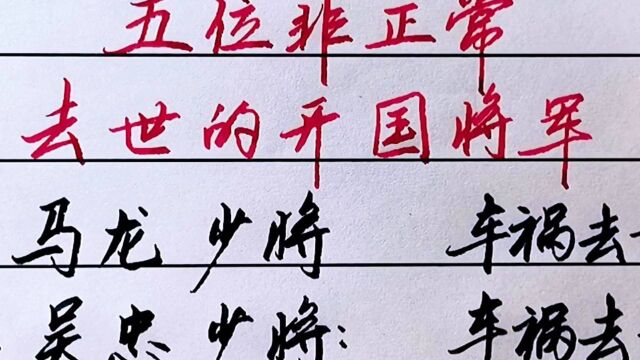 五位非正常
去世的开国将军
马龙少将 车祸去
吴忠少将: 车祸去